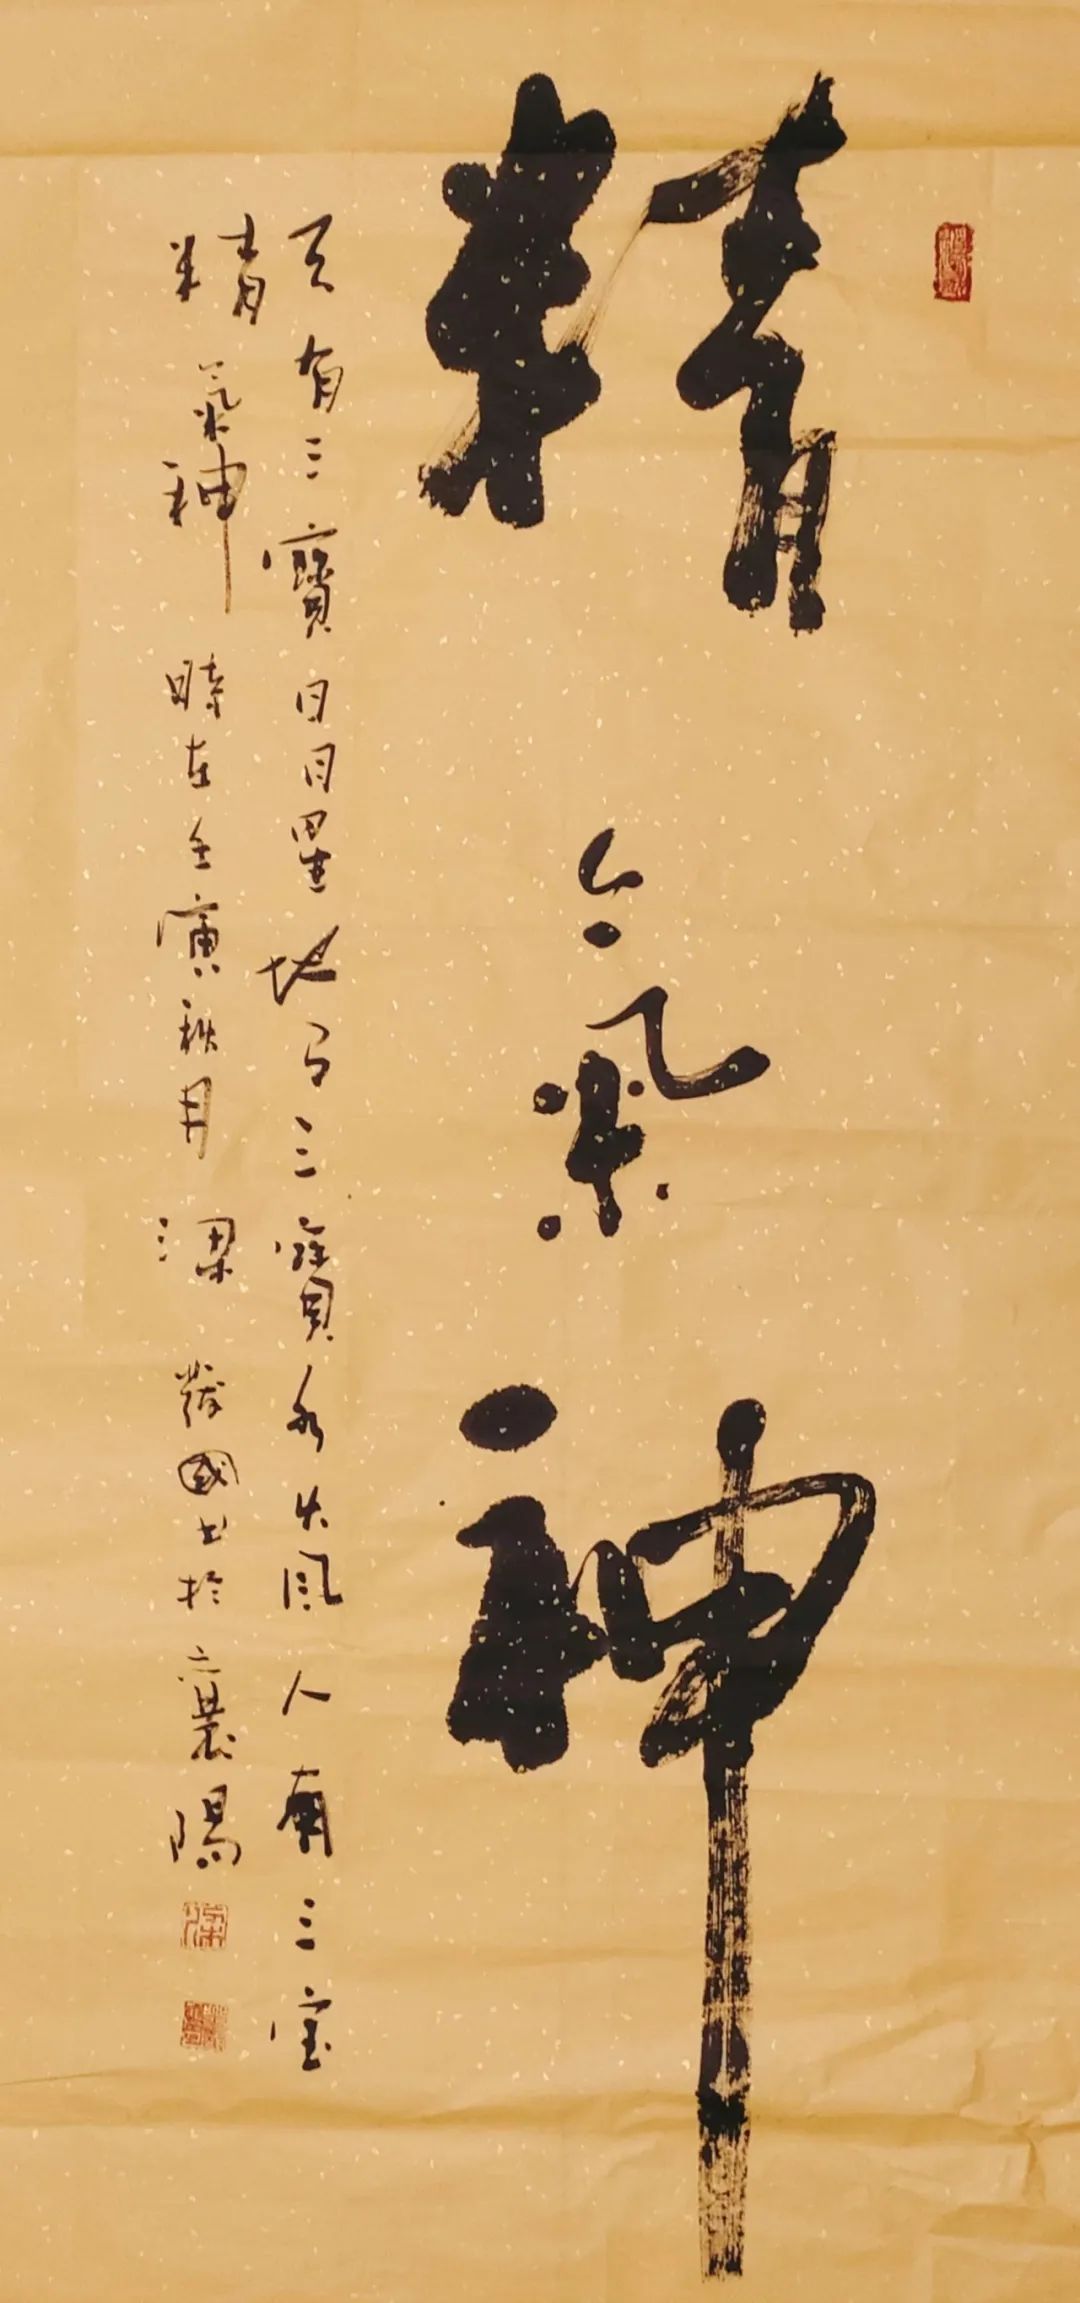 精氣神
天有三寶日月星地有三寶水火風人有三宝
精氣神 時在壬寅秋月 梁發國书於襄陽